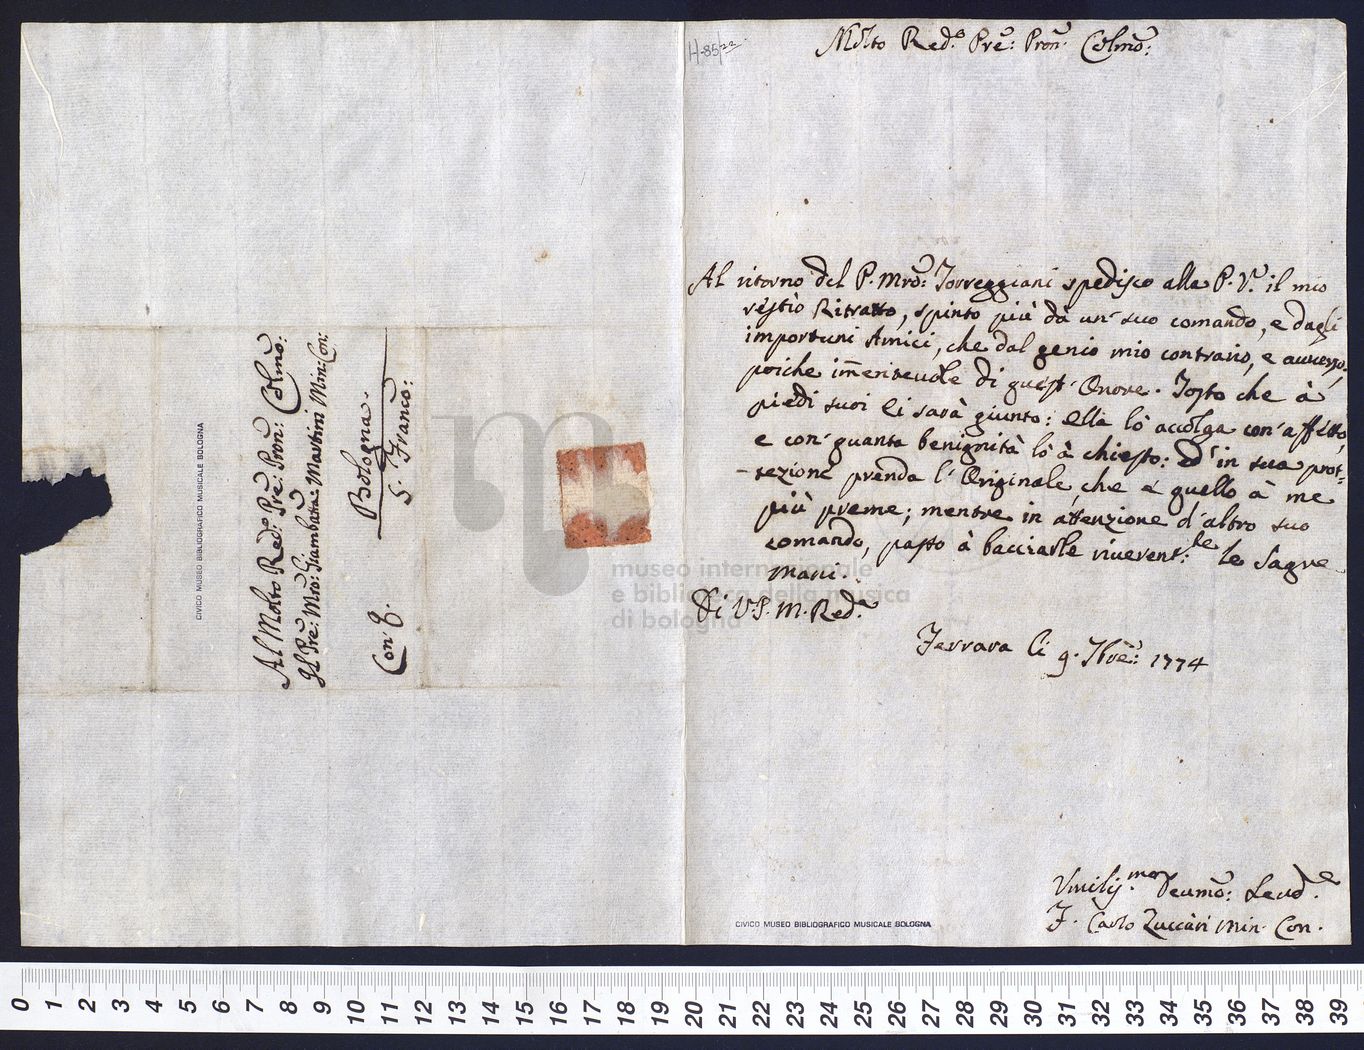 Al Molto Red.º Prẽ: Pron̄: Colmõ:
Il Prẽ: Mrõ: Giambatta: Martini Min: Con:
Bologna.
S. Francõ:
Con
CIVICO MUSEO BIBLIOGRAFICO MUSICALE BOLOGNA
H-85/22
Molto Red.º Prẽ: Pron̄: Colmõ:
Al ritorno del P. Mrõ: Torreggiani spedisco alla P. V.ª il mio
restìo Ritratto, spinto più dà un' suo comando, e dagli
importuni Amici, che dal genio mio contrario, e avverso,
poiche im̅eritevole di quest' Onore. Tosto che à
piedi suoi li sarà giunto: Ella lò accolga con' affetto,
e con' quanta benignità lò à chiesto: ed' in sua prot-
-tezione prenda l' Originale, che è quello à me
più preme; mentre in attenzione d' altro suo
comando, passo à bacciarle riverent:te le Sagre
mani.
Di V. S. M. Red.ª
Ferrara li 9. 7brẽ: 1774
Umilis.mo Devmõ: Serud.e
F. Carlo Zuccàri Min. Con.
CIVICO MUSEO BIBLIOGRAFICO MUSICALE BOLOGNA
museo internazionale
e biblioteca della musica
di bologna
0 1 2 3 4 5 6 7 8 9 10 11 12 13 14 15 16 17 18 19 20 21 22 23 24 25 26 27 28 29 30 31 32 33 34 35 36 37 38 39